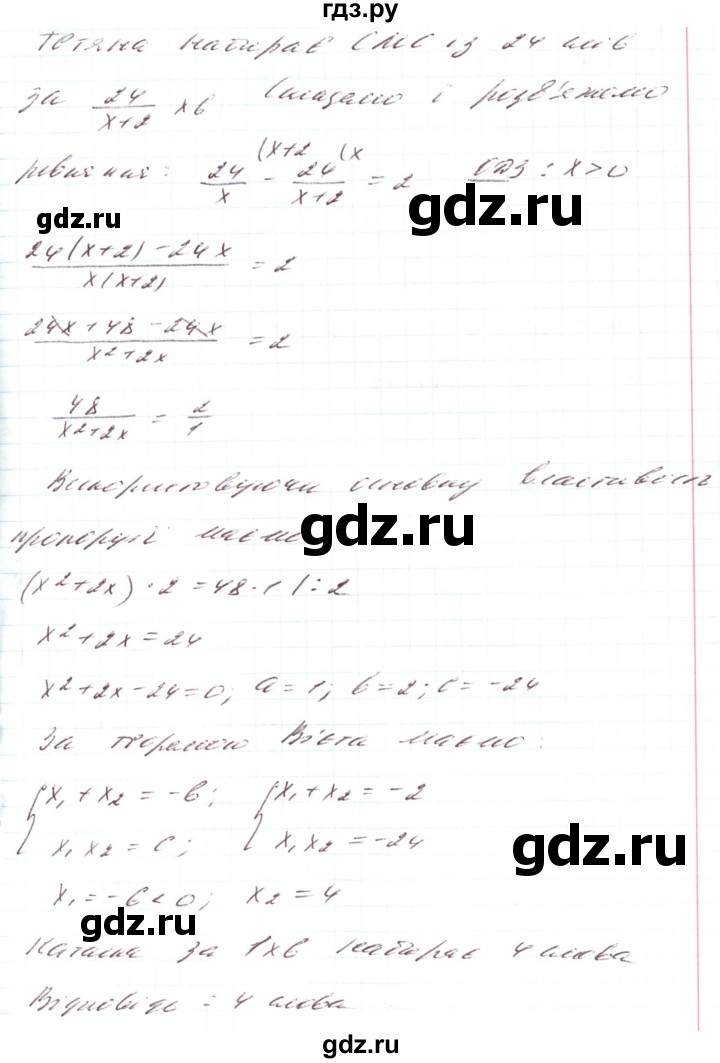 гдз.ру
Тетяна набирає СМС із 24 слів
за 24/(x+2) хв Складемо і розв'яжемо
рівняння: 24/x (x+2 - 24/(x+2) (x = 2 ОДЗ: x>0
gdz.ru gdz.ru
(24(x+2)-24x)/(x(x+2)) = 2
(24x+48-24x)/(x²+2x) = 2
48/(x²+2x) = 2/1
Використовуючи основну властивість
gdz.ru
пропорції маємо
(x²+2x)·2=48·1 |:2
x²+2x=24
x²+2x-24=0; a=1; b=2; c=-24
За теоремою Вієта маємо:
{x₁+x₂=-b; {x₁+x₂=-2
x₁x₂=c; x₁x₂=-24
gdz.ru
x₁=-6<0; x₂=4
gdz.ru
за 1 хв набирає 4 слова
Відповідь: 4 слова
гдз.ру